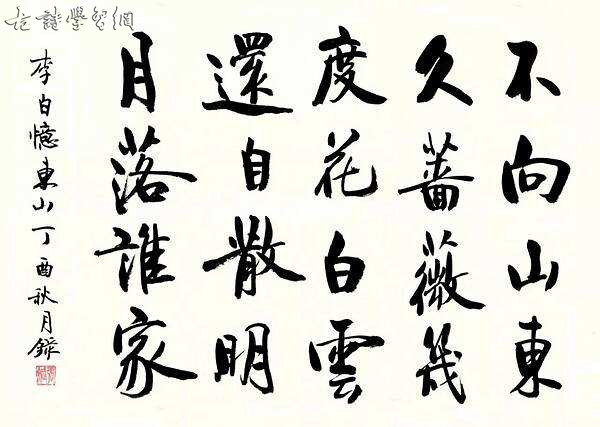 不向山東
久薔薇幾
度花白雲
還自散明
月落誰家
李白憶東山丁酉秋月錄
詩學習網